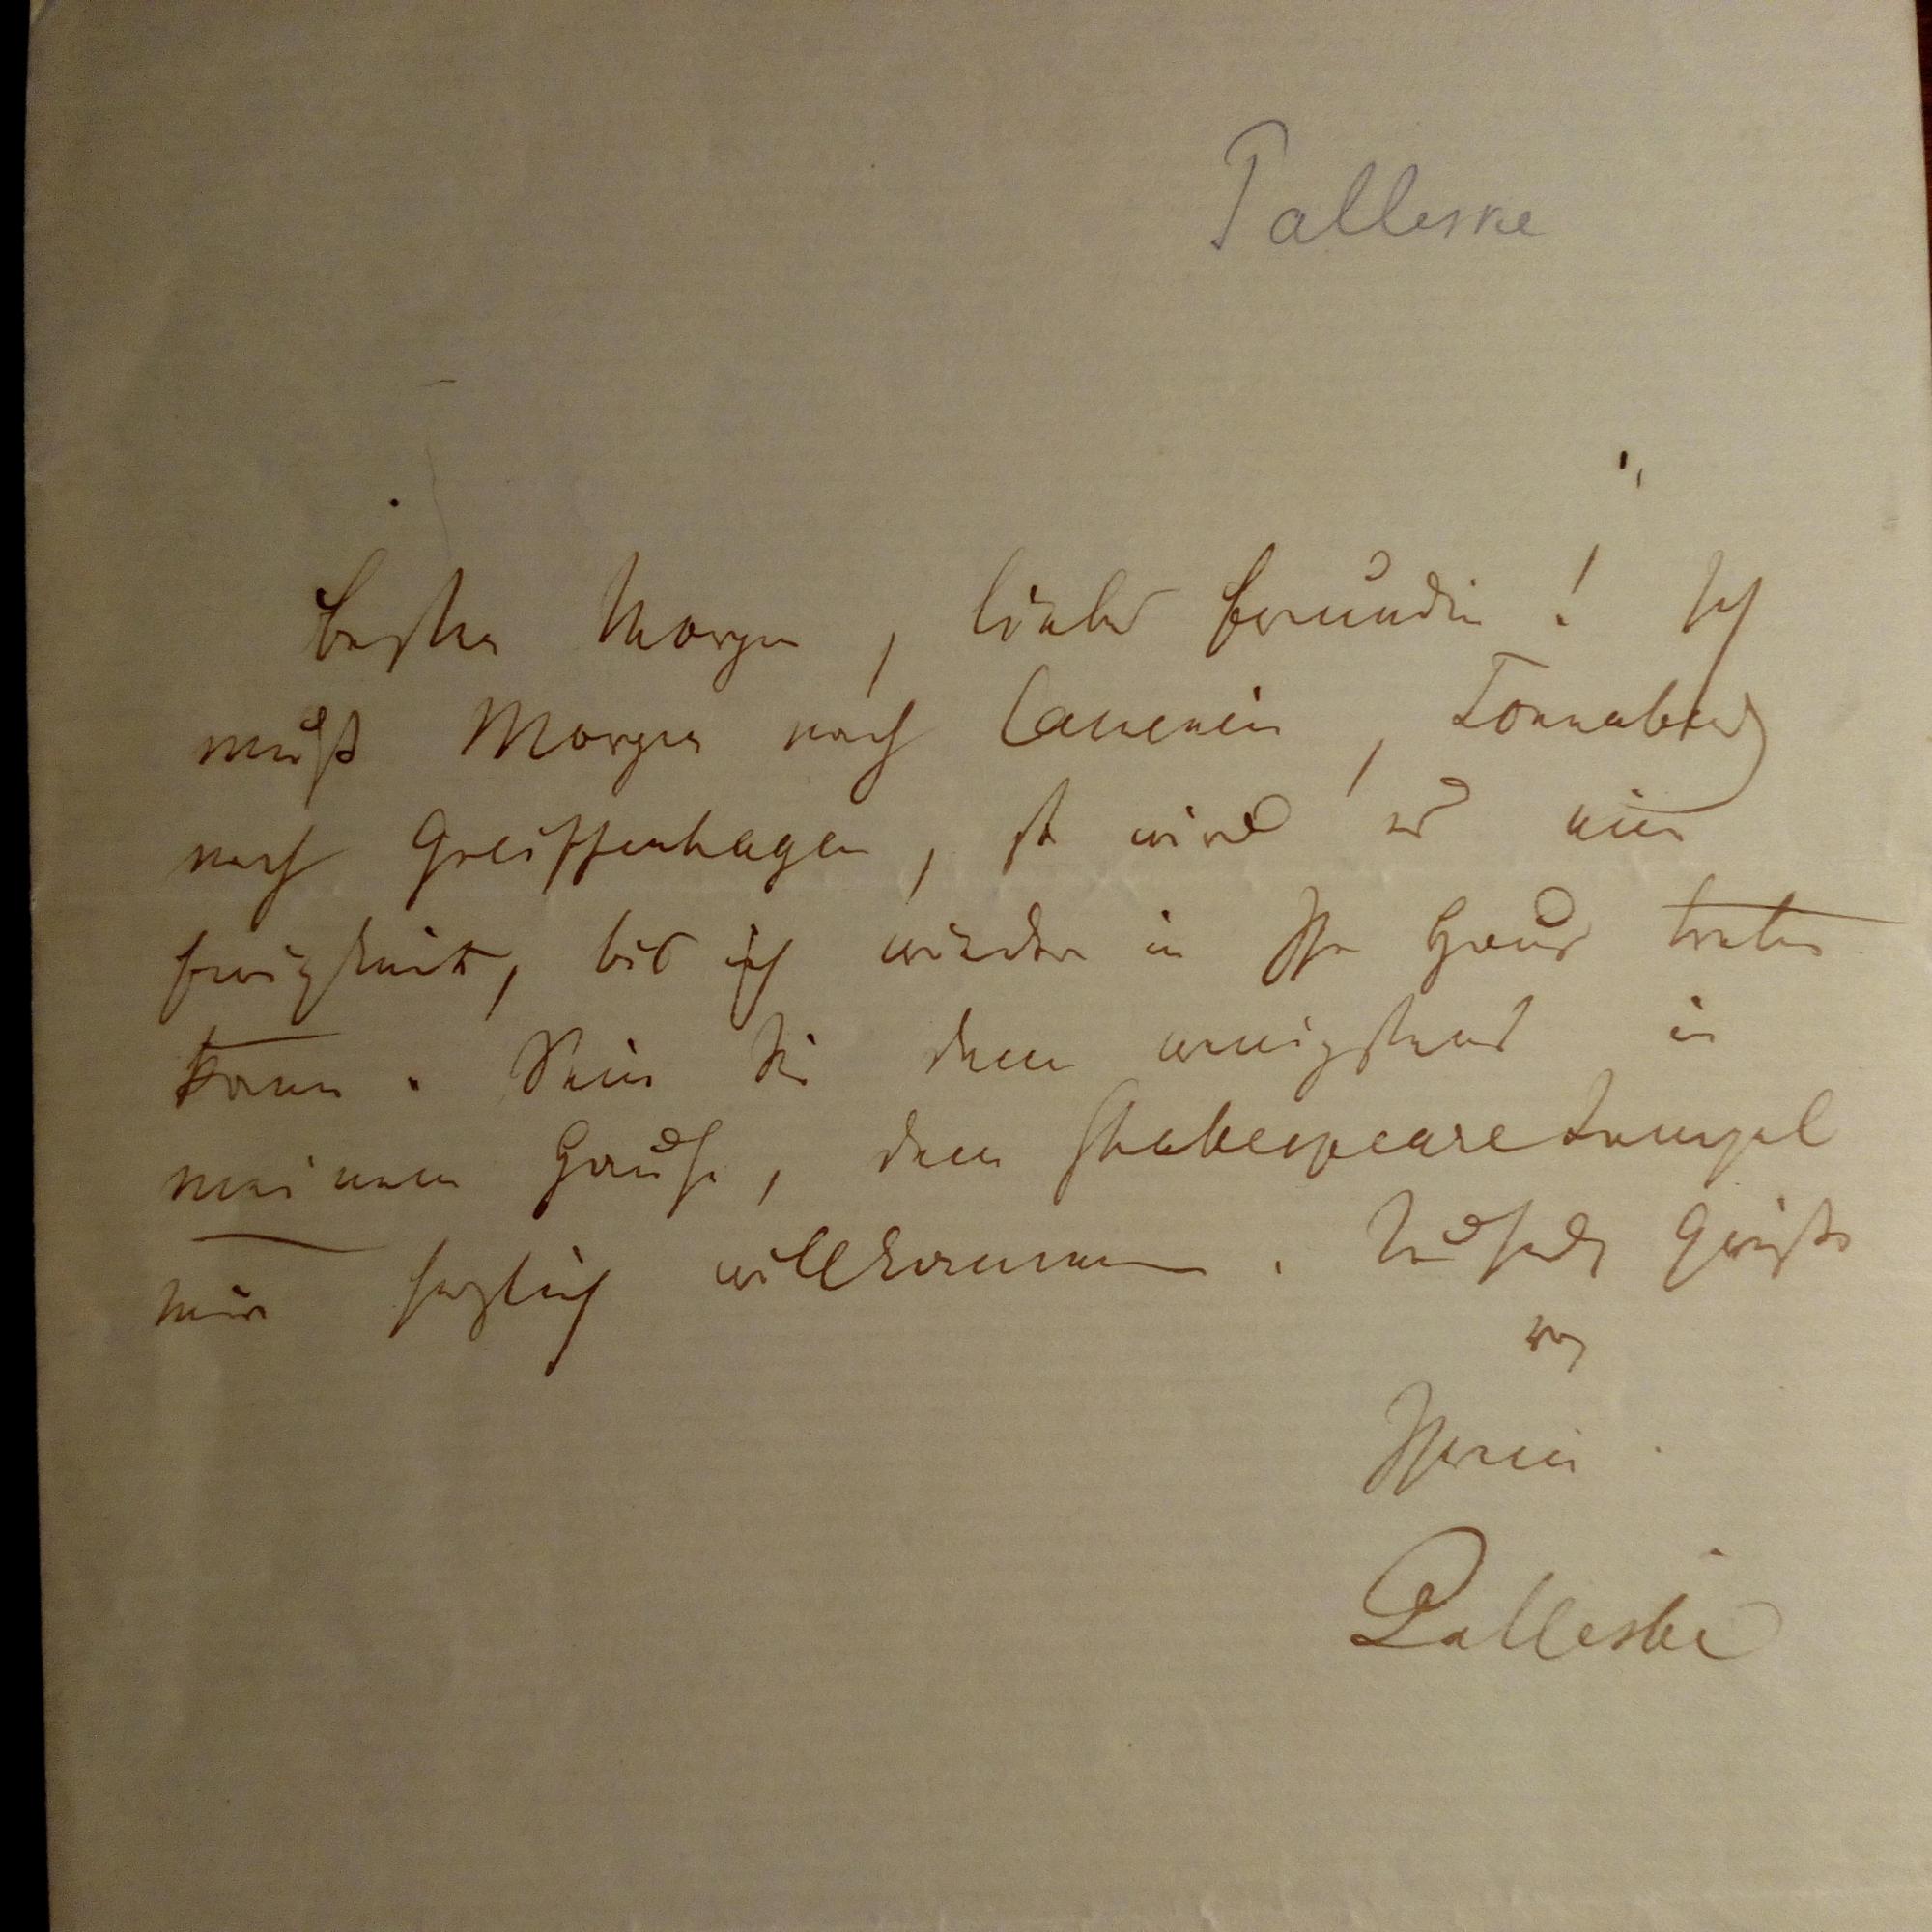 Palleske
besten Morgen, liebe Freundin! Ich
muß Morgen nach Cammin, Sonnabend
nach Greiffenhagen, so wird es eine
Ewigkeit, bis ich wieder in Ihr Haus treten
kann. Sein Sie denn wenigstens in
meinem Hause, dem Shakespearetempel
mir herzlich willkommen. Tausend Grüße
von
Ihrem
Palleske